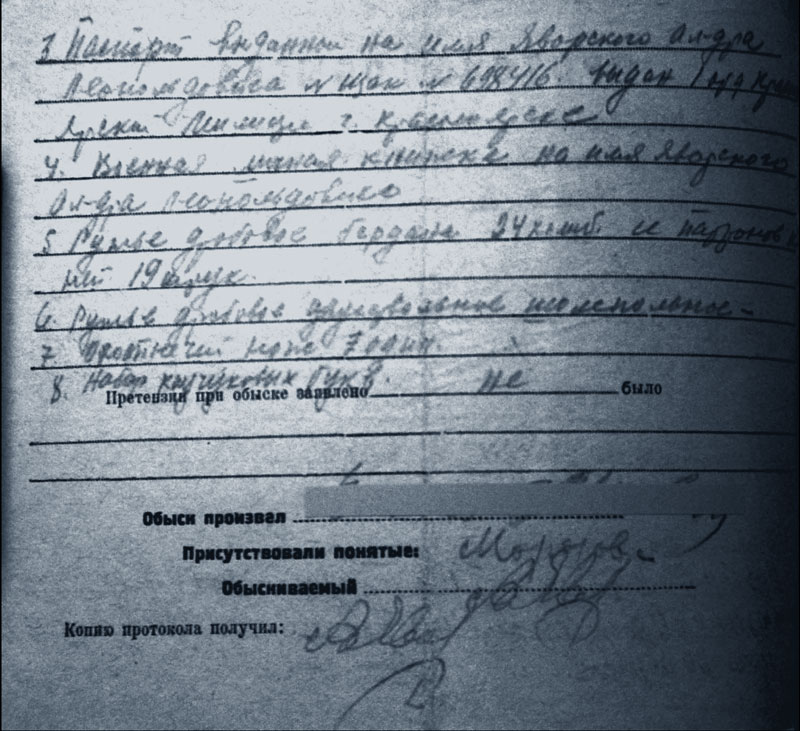 3 Паспорт выданный на имя Яворского Ал-дра
Леопольдовича № 698416. выдан
Милиции г. Красноярска
4. Военная личная книжка на имя Яворского
Ал-дра Леопольдовича
5 Ружье дробовое бердана 24 калиб. и патронов к
19 штук.
6. Ружье дробовое двуствольное шомпольное-
7 Охотничий нож 1 один.
8. Набор каучуковых букв.
Претензии при обыске заявлено не было
Обыск произвел
Присутствовали понятые:
Обыскиваемый
Копию протокола получил: